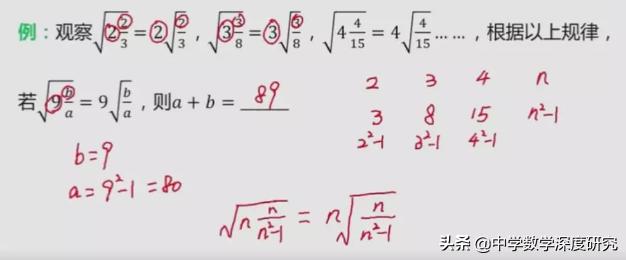 例：观察√(2 2/3)=2√(2/3)，√(3 3/8)=3√(3/8)，√(4 4/15)=4√(4/15)……，根据以上规律，
若√(9 b/a)=9√(b/a)，则a+b=89
2 3 4 n
3 8 15 n²-1
2²-1 3²-1 4²-1
b=9
a=9²-1=80
√(n n/(n²-1))=n√(n/(n²-1))
头条 @中学数学深度研究